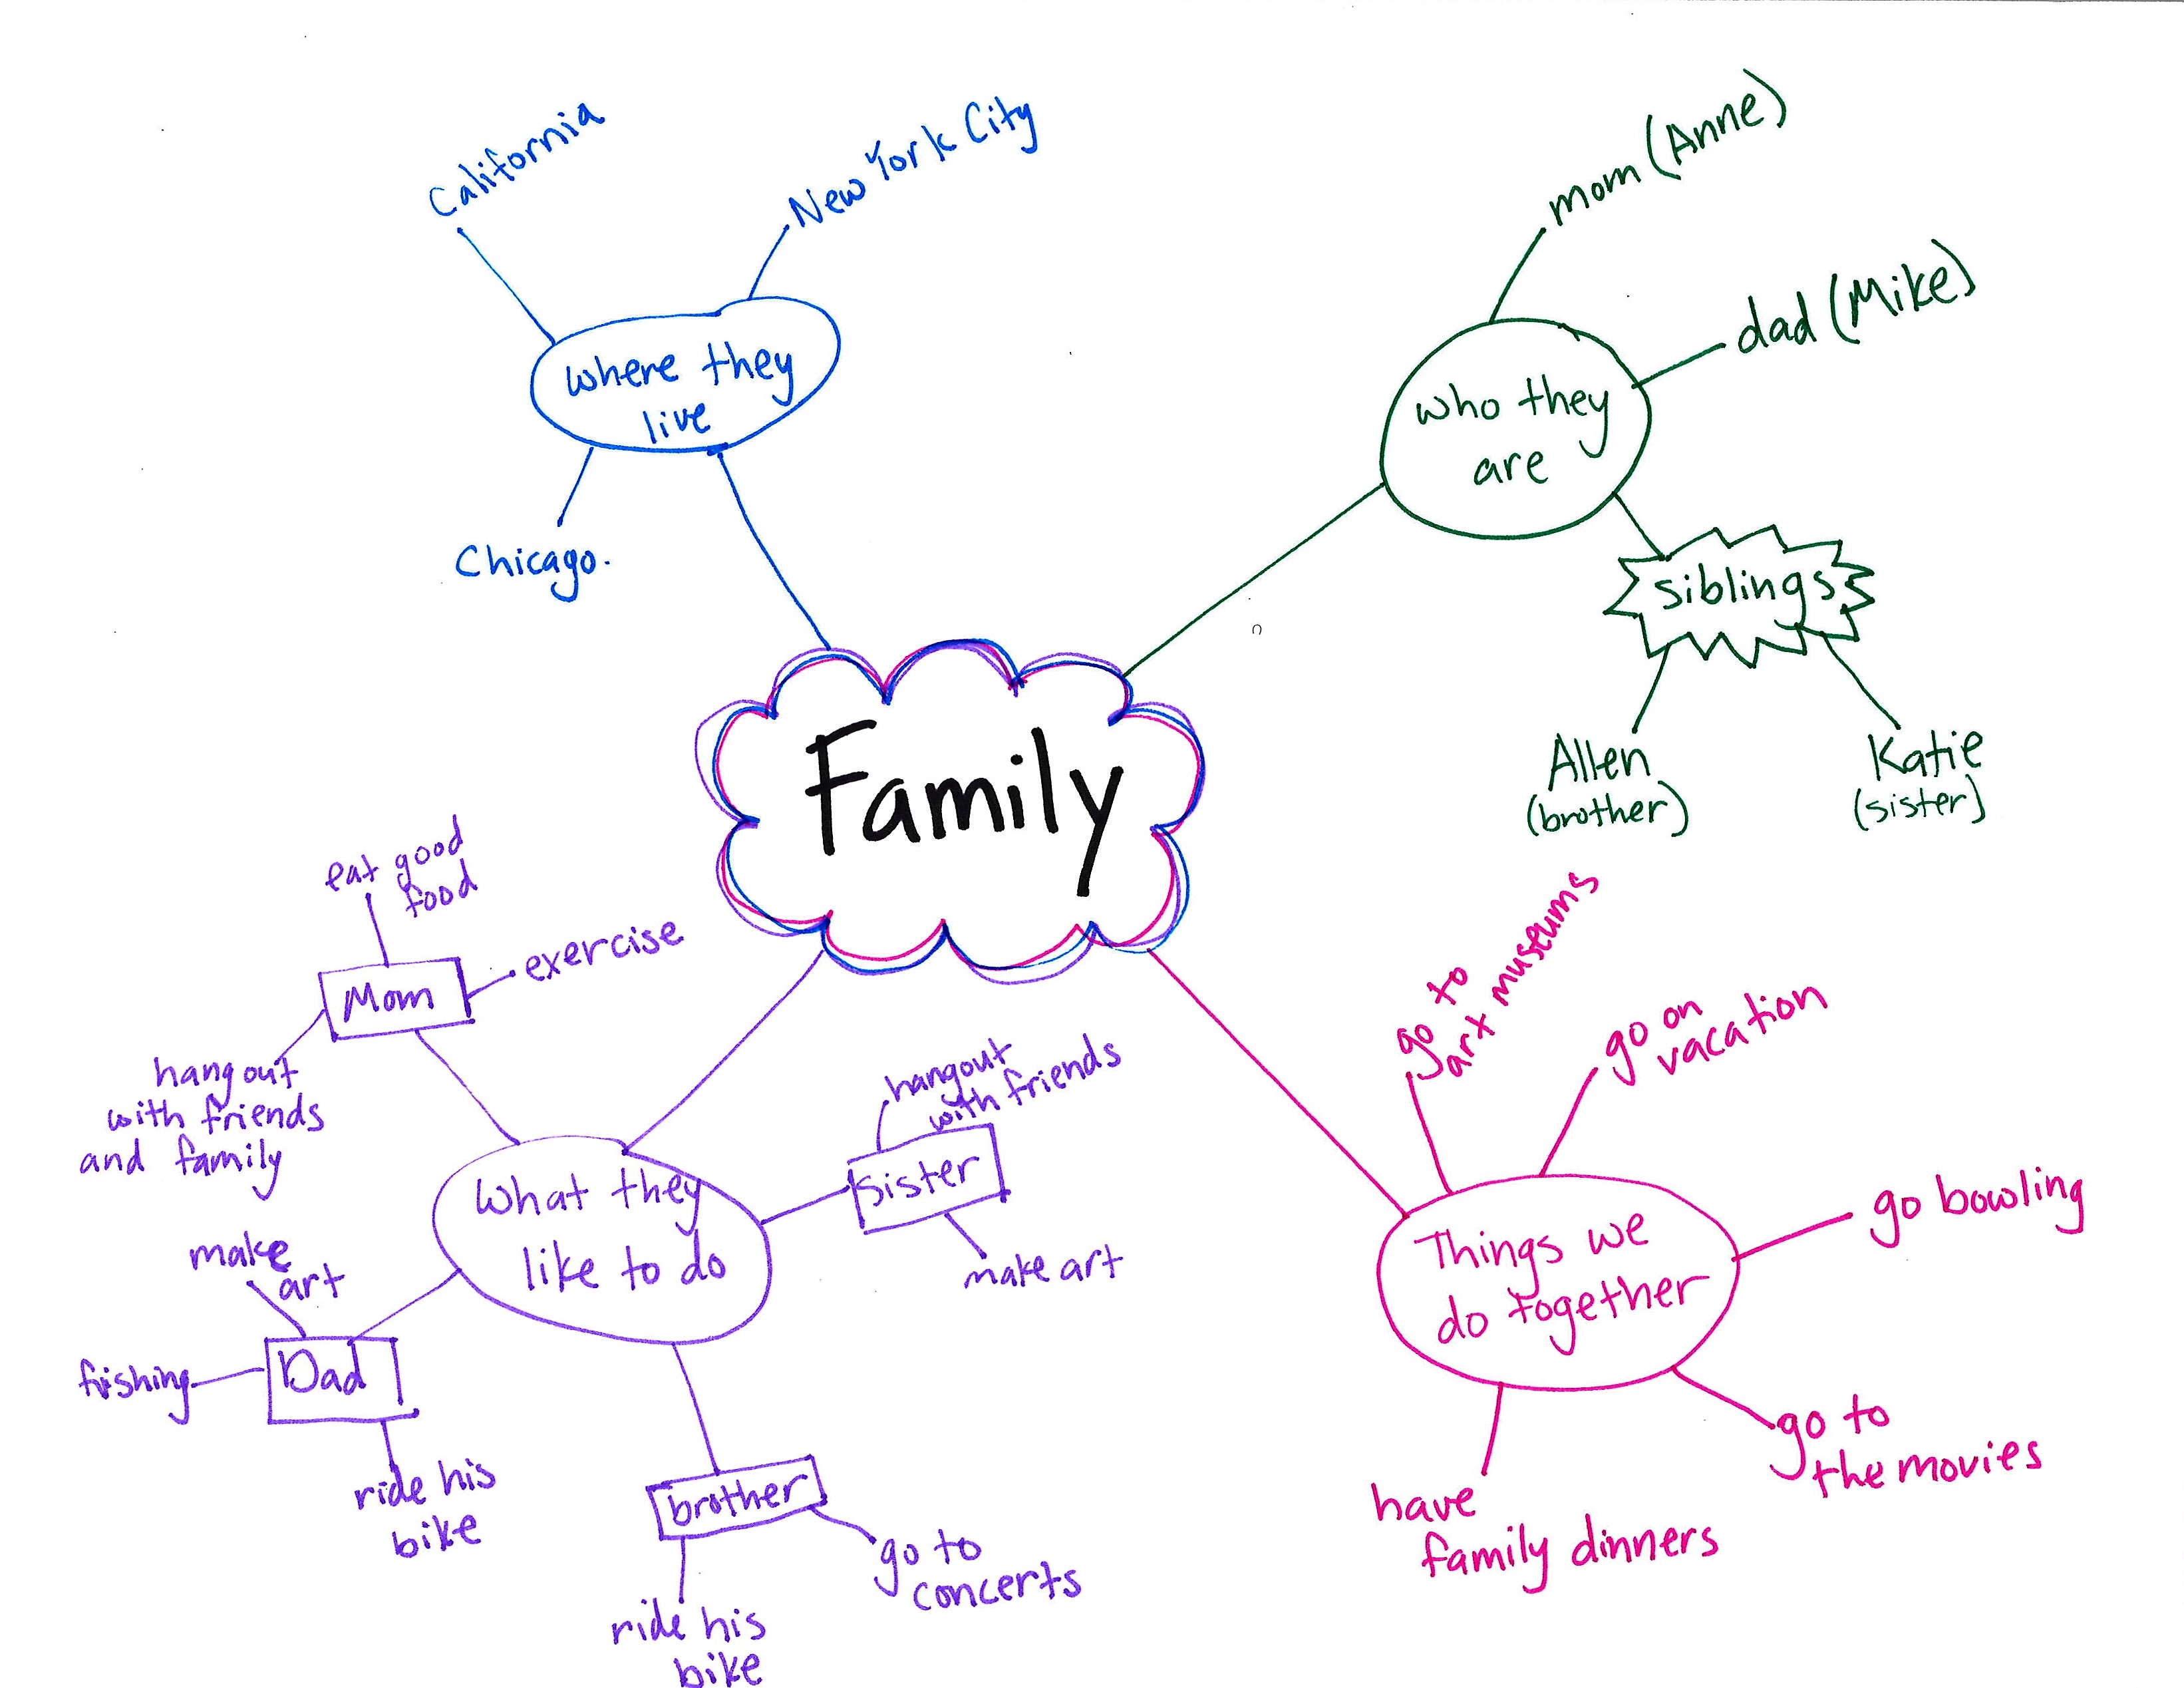 Family
where they
live
California
New York City
Chicago.
who they
are
mom (Anne)
dad (Mike)
siblings
Allen
(brother)
Katie
(sister)
What they
like to do
Mom
eat good
food
exercise
hang out
with friends
and family
Sister
hangout
with friends
make art
Dad
make
art
fishing
ride his
bike
brother
go to
concerts
ride his
bike
Things we
do together
go to
art museums
go on
vacation
go bowling
go to
the movies
have
family dinners